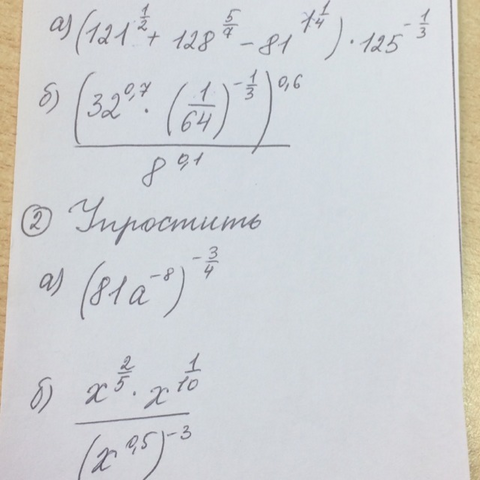 а) (121^{1/2} + 128^{5/7} − 81^{1 1/4}) · 125^{−1/3}
б) (32^{0,7} · (1/64)^{−1/3})^{0,6} / 8^{0,1}
② Упростить
а) (81a^{−8})^{−3/4}
б) x^{2/5} · x^{1/10} / (x^{0,5})^{−3}